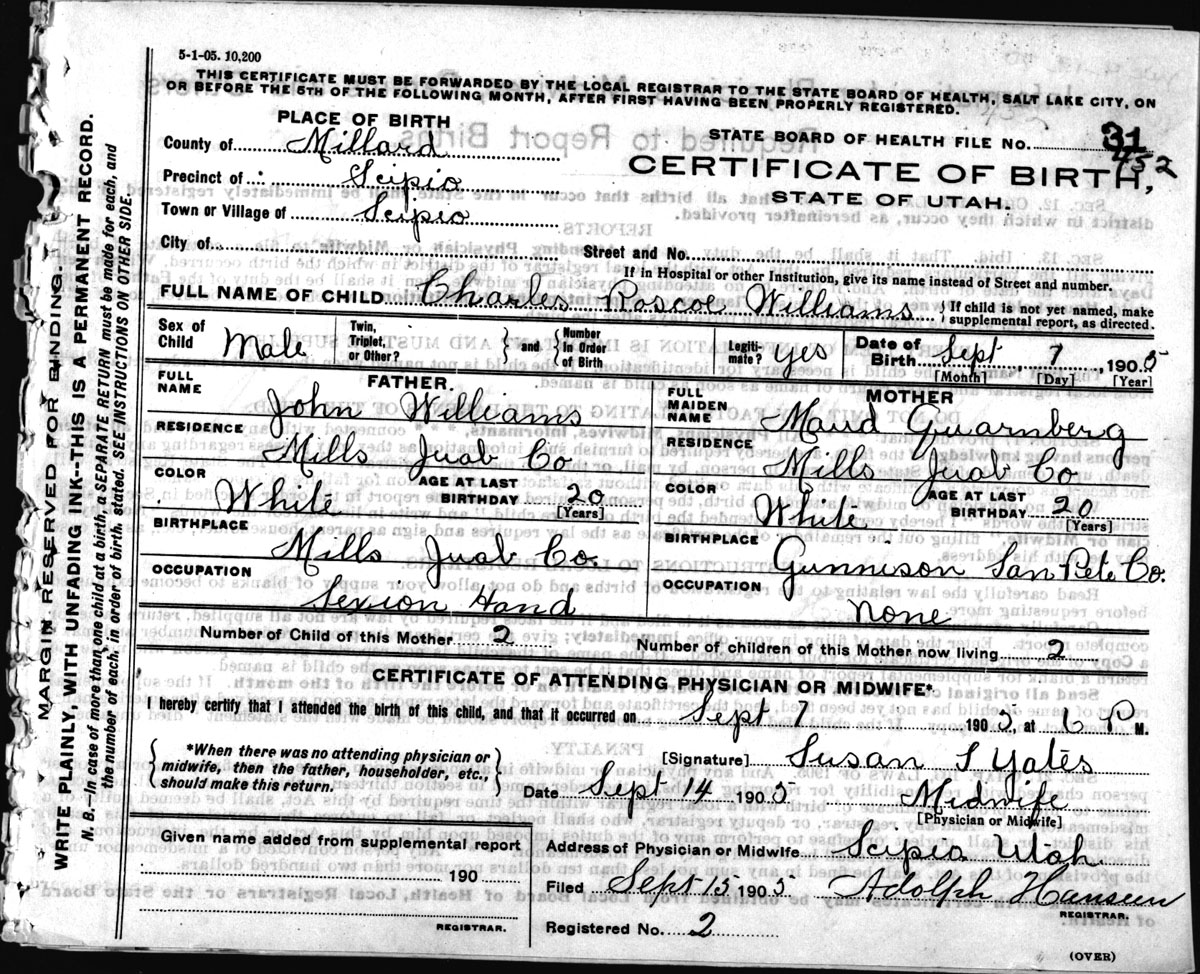 5-1-05. 10,200
THIS CERTIFICATE MUST BE FORWARDED BY THE LOCAL REGISTRAR TO THE STATE BOARD OF HEALTH, SALT LAKE CITY, ON
OR BEFORE THE 5TH OF THE FOLLOWING MONTH, AFTER FIRST HAVING BEEN PROPERLY REGISTERED.
PLACE OF BIRTH
STATE BOARD OF HEALTH FILE No. 31
452
County of Millard
CERTIFICATE OF BIRTH,
Precinct of Scipio
STATE OF UTAH.
Town or Village of Scipio
City of Street and No.
If in Hospital or other Institution, give its name instead of Street and number.
FULL NAME OF CHILD Charles Roscoe Williams { If child is not yet named, make
supplemental report, as directed.
Sex of Child Male Twin, Triplet, or Other? } and { Number In Order of Birth Legiti-mate? yes Date of Birth Sept 7, 1905
[Month] [Day] [Year]
FATHER.
FULL NAME John Williams
RESIDENCE Mills Juab Co
COLOR White AGE AT LAST BIRTHDAY 20
[Years]
BIRTHPLACE Mills Juab Co.
OCCUPATION Sexion Hand
MOTHER
FULL MAIDEN NAME Maud Guarnberg
RESIDENCE Mills Juab Co
COLOR White AGE AT LAST BIRTHDAY 20
[Years]
BIRTHPLACE Gunnison San Pete Co.
OCCUPATION None
Number of Child of this Mother 2 Number of children of this Mother now living 2
CERTIFICATE OF ATTENDING PHYSICIAN OR MIDWIFE*
I hereby certify that I attended the birth of this child, and that it occurred on Sept 7 1905, at 6 P M.
{ *When there was no attending physician or
midwife, then the father, householder, etc.,
should make this return. }
[Signature] Susan S Yates
Date Sept 14 1905 Midwife
[Physician or Midwife]
Given name added from supplemental report
190
REGISTRAR.
Address of Physician or Midwife Scipio Utah
Filed Sept 15 1905. Adolph Hansen
REGISTRAR.
Registered No. 2
(OVER)
MARGIN RESERVED FOR BINDING.
WRITE PLAINLY, WITH UNFADING INK--THIS IS A PERMANENT RECORD.
N. B.--In case of more than one child at a birth, a SEPARATE RETURN must be made for each, and
the number of each, in order of birth, stated. SEE INSTRUCTIONS ON OTHER SIDE.